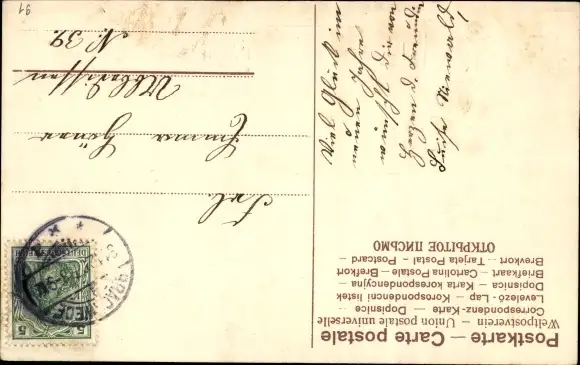 Postkarte — Carte postale
Weltpostverein — Union postale universelle
Correspondenz-Karte — Dopisnice
Levelező-Lap — Korespondenční lístek
Dopisnica — Karta korespondencyjna
Briefkaart — Cartolina Postale — Brefkort
Brevkort — Tarjeta Postal — Postcard
ОТКРЫТОЕ ПИСЬМО
Frl.
Emma
N. 39.
Viel Glück im
neuen Jahre
wünscht Dir von
Herzen d. Freundin
5 5
91